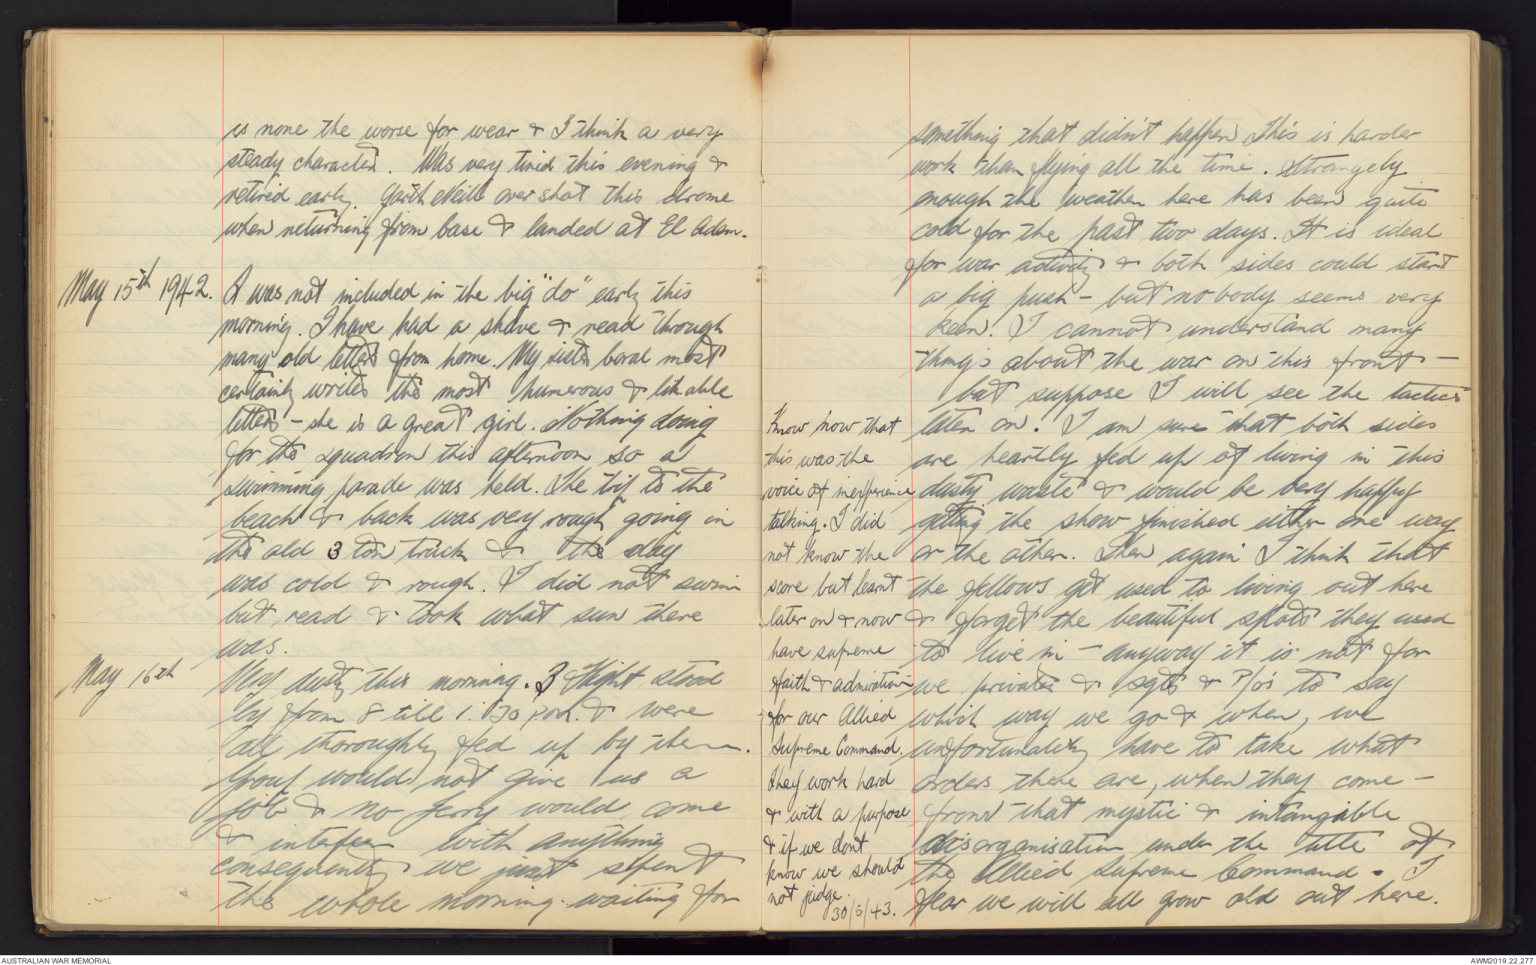 is none the worse for wear & I think a very
steady character. Was very tired this evening &
retired early. Garth Neill over shot this drome
when returning from base & landed at El Adem.
May 15th 1942. A was not included in the big "do" early this
morning. I have had a shave & read through
many old letters from home. My sister most
certainly writes the most humerous & likable
letters - she is a great girl. Nothing doing
for the squadron this afternoon so a
swimming parade was held. The trip to the
beach & back was very rough going in
the old 3 ton truck & the day
was cold & rough. I did not swim
but read & took what sun there
was.
May 16th Very dusty this morning. B Flight stood
by from 8 till 1.30 p.m. & were
all thoroughly fed up by then.
Group would not give us a
job & no Jerry would come
& interfere with anything
consequently we just spent
the whole morning waiting for
something that didn't happen. This is harder
work than flying all the time. Strangely
enough the weather here has been quite
cold for the past two days. It is ideal
for war activity & both sides could start
a big push - but nobody seems very
keen! I cannot understand many
things about the war on this front -
but suppose I will see the tactics
later on! I am sure that both sides
are heartily fed up of living in this
dusty waste & would be very happy
getting the show finished either one way
or the other. Then again I think that
the fellows get used to living out here
& forget the beautiful spots they used
to live in - anyway it is not for
we privates & sgts & P/o's to say
which way we go & when, we
unfortunately have to take what
orders there are, when they come -
from that mystic & intangible
disorganisation under the title of
the Allied Supreme Command. I
fear we will all grow old out here.
Know now that
this was the
voice of inexperience
talking. I did
not know the
score but learnt
later on & now
have supreme
faith & admiration
for our Allied
Supreme Command.
They work hard
& with a purpose
& if we dont
know we should
not judge.
30/5/43.
AUSTRALIAN WAR MEMORIAL
AWM2019.22.277